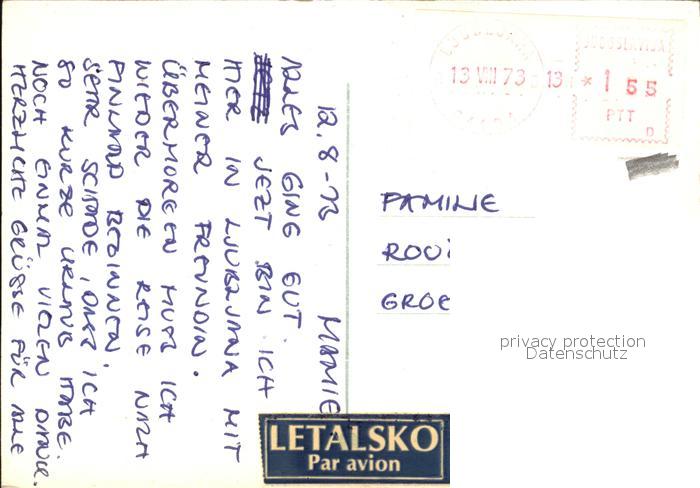 12.8-73
ALLES GING GUT.
JEZT BIN ICH
HIER IN LJUBLJANA MIT
MEINER FREUNDIN.
ÜBERMORGEN MUSS ICH
WIEDER DIE REISE NACH
FINNLAND BEGINNEN.
SEHR SCHADE, DASS ICH
SO KURZE URLAUB HABE.
NOCH EINMAL VIELEN DANK.
HERZLICHE GRÜSSE FÜR ALLE
MAMIE
LETALSKO
Par avion
13 VIII 73
13
* 1 55
JUGOSLAVIJA
PTT
D
FAMILIE
ROO
GROE
privacy protection
Datenschutz